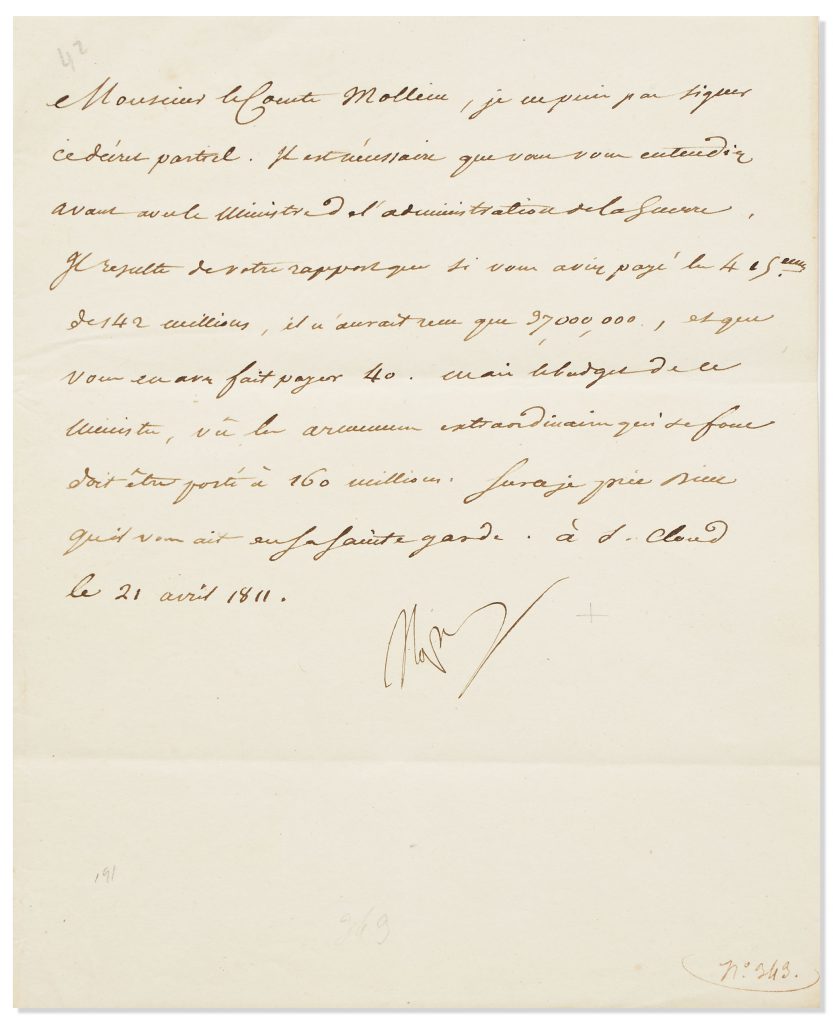 42
Monsieur le Comte Mollien, je ne puis pas signer
ce décret partiel. Il est nécessaire que vous vous entendiez
avant avec le Ministre d l'administration de la Guerre,
Il résulte de votre rapport que si vous aviez payé les 4 12emes
des 142 millions, il n'aurait reçu que 37,000,000, et que
vous en avez fait payer 40. mais le budget de ce
Ministre, vû les armemens extraordinaires qui se font
doit être porté à 160 millions. Sur ce je prie Dieu
qu'il vous ait en sa sainte garde. à S. Cloud
le 21 avril 1811.
Nap
191
343
N° 343.